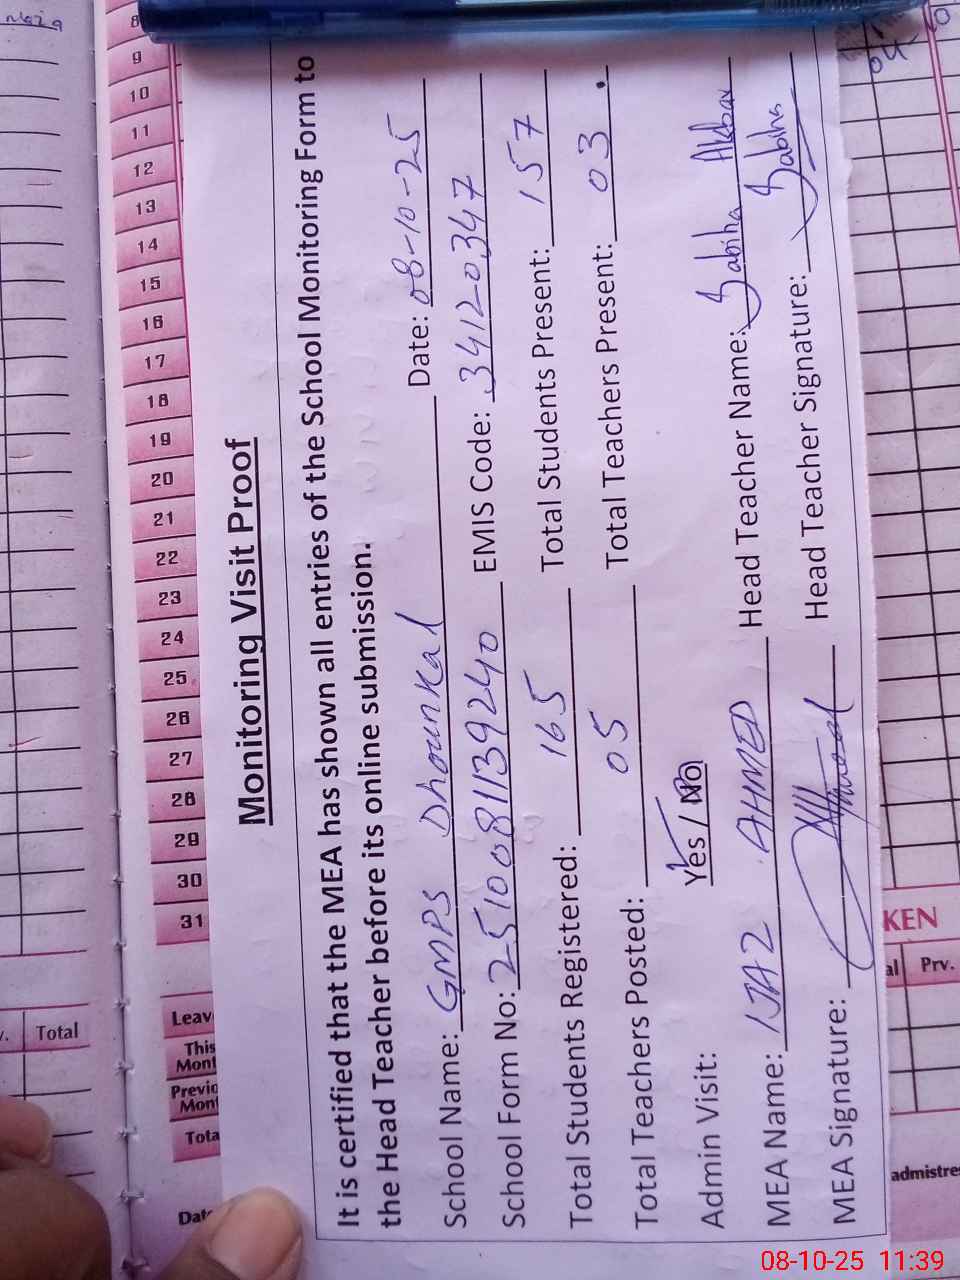 Monitoring Visit Proof
It is certified that the MEA has shown all entries of the School Monitoring Form to
the Head Teacher before its online submission.
School Name: GMPS Dhounkal Date: 08-10-25
School Form No: 251008113924 0 EMIS Code: 34120347
Total Students Registered: 165 Total Students Present: 157
Total Teachers Posted: 05 Total Teachers Present: 03
Admin Visit: Yes / No
MEA Name: IJAZ AHMED Head Teacher Name: Sabiha Akbar
MEA Signature: Ahmed Head Teacher Signature: Sabiha
8
9
10
11
12
13
14
15
16
17
18
19
20
21
22
23
24
25
26
27
28
29
30
31
Leav
This
Mont
Previo
Mont
Tota
Dat
Total
KEN
al Prv.
admistre
08-10-25 11:39